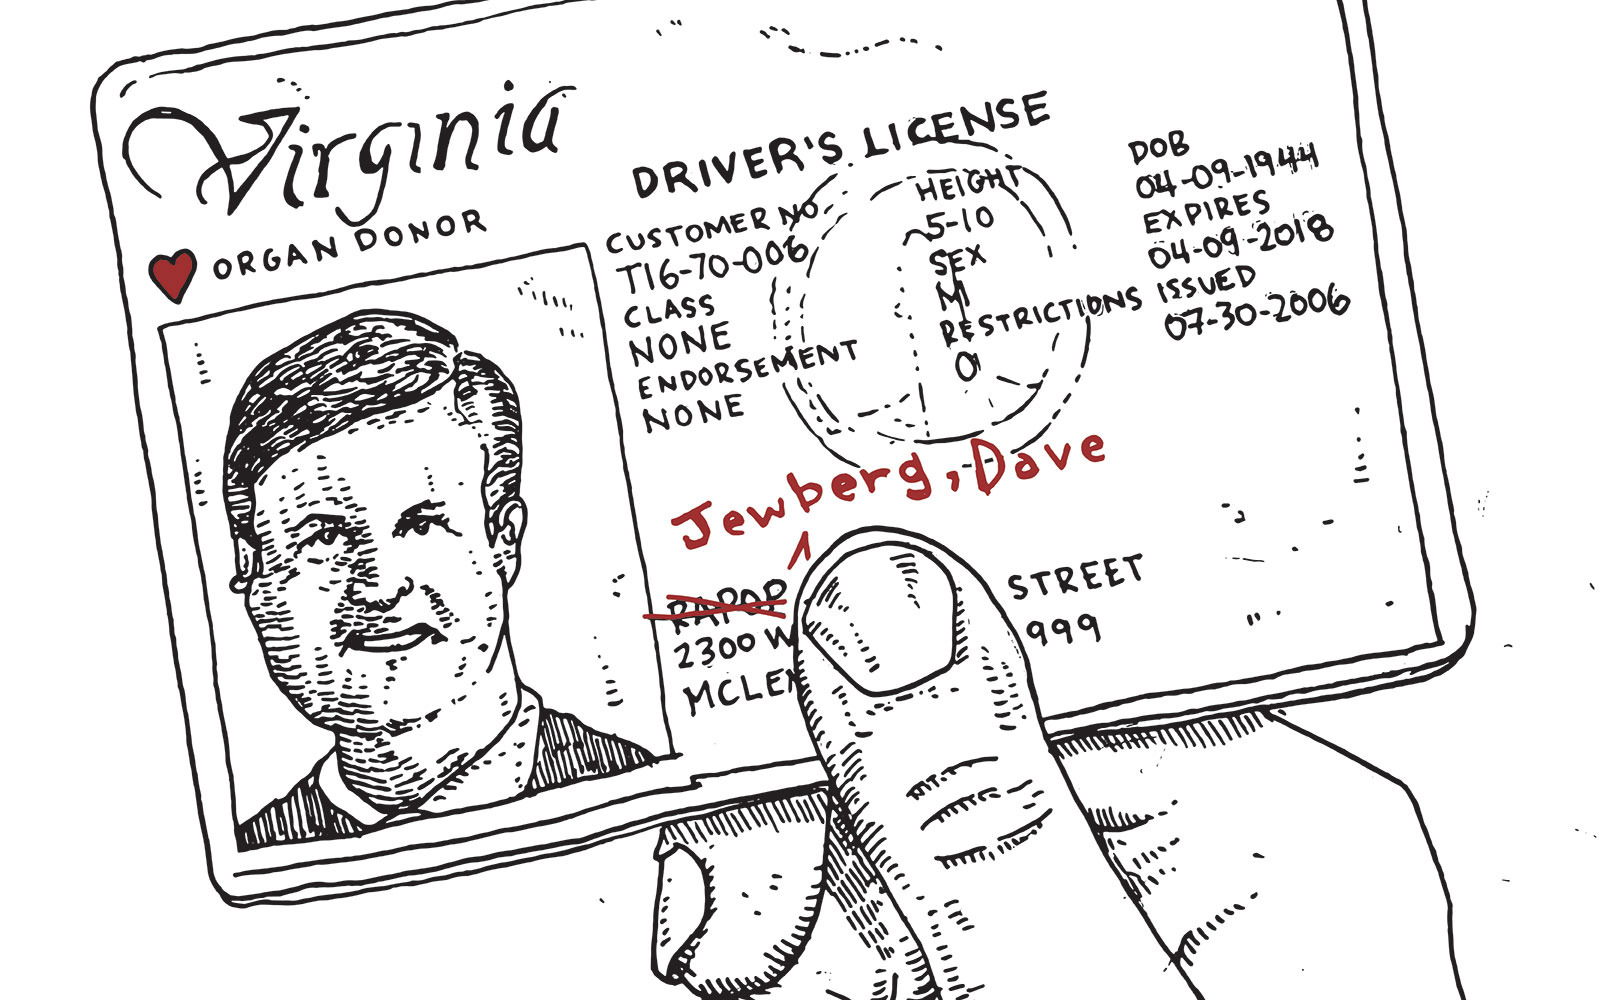 Virginia
ORGAN DONOR
DRIVER'S LICENSE
CUSTOMER NO
T16-70-006
CLASS
NONE
ENDORSEMENT
NONE
HEIGHT
5-10
SEX
M
RESTRICTIONS
0
DOB
04-09-1944
EXPIRES
04-09-2018
ISSUED
07-30-2006
Jewberg, Dave
RAPOP
2300 W STREET
MCLE 999